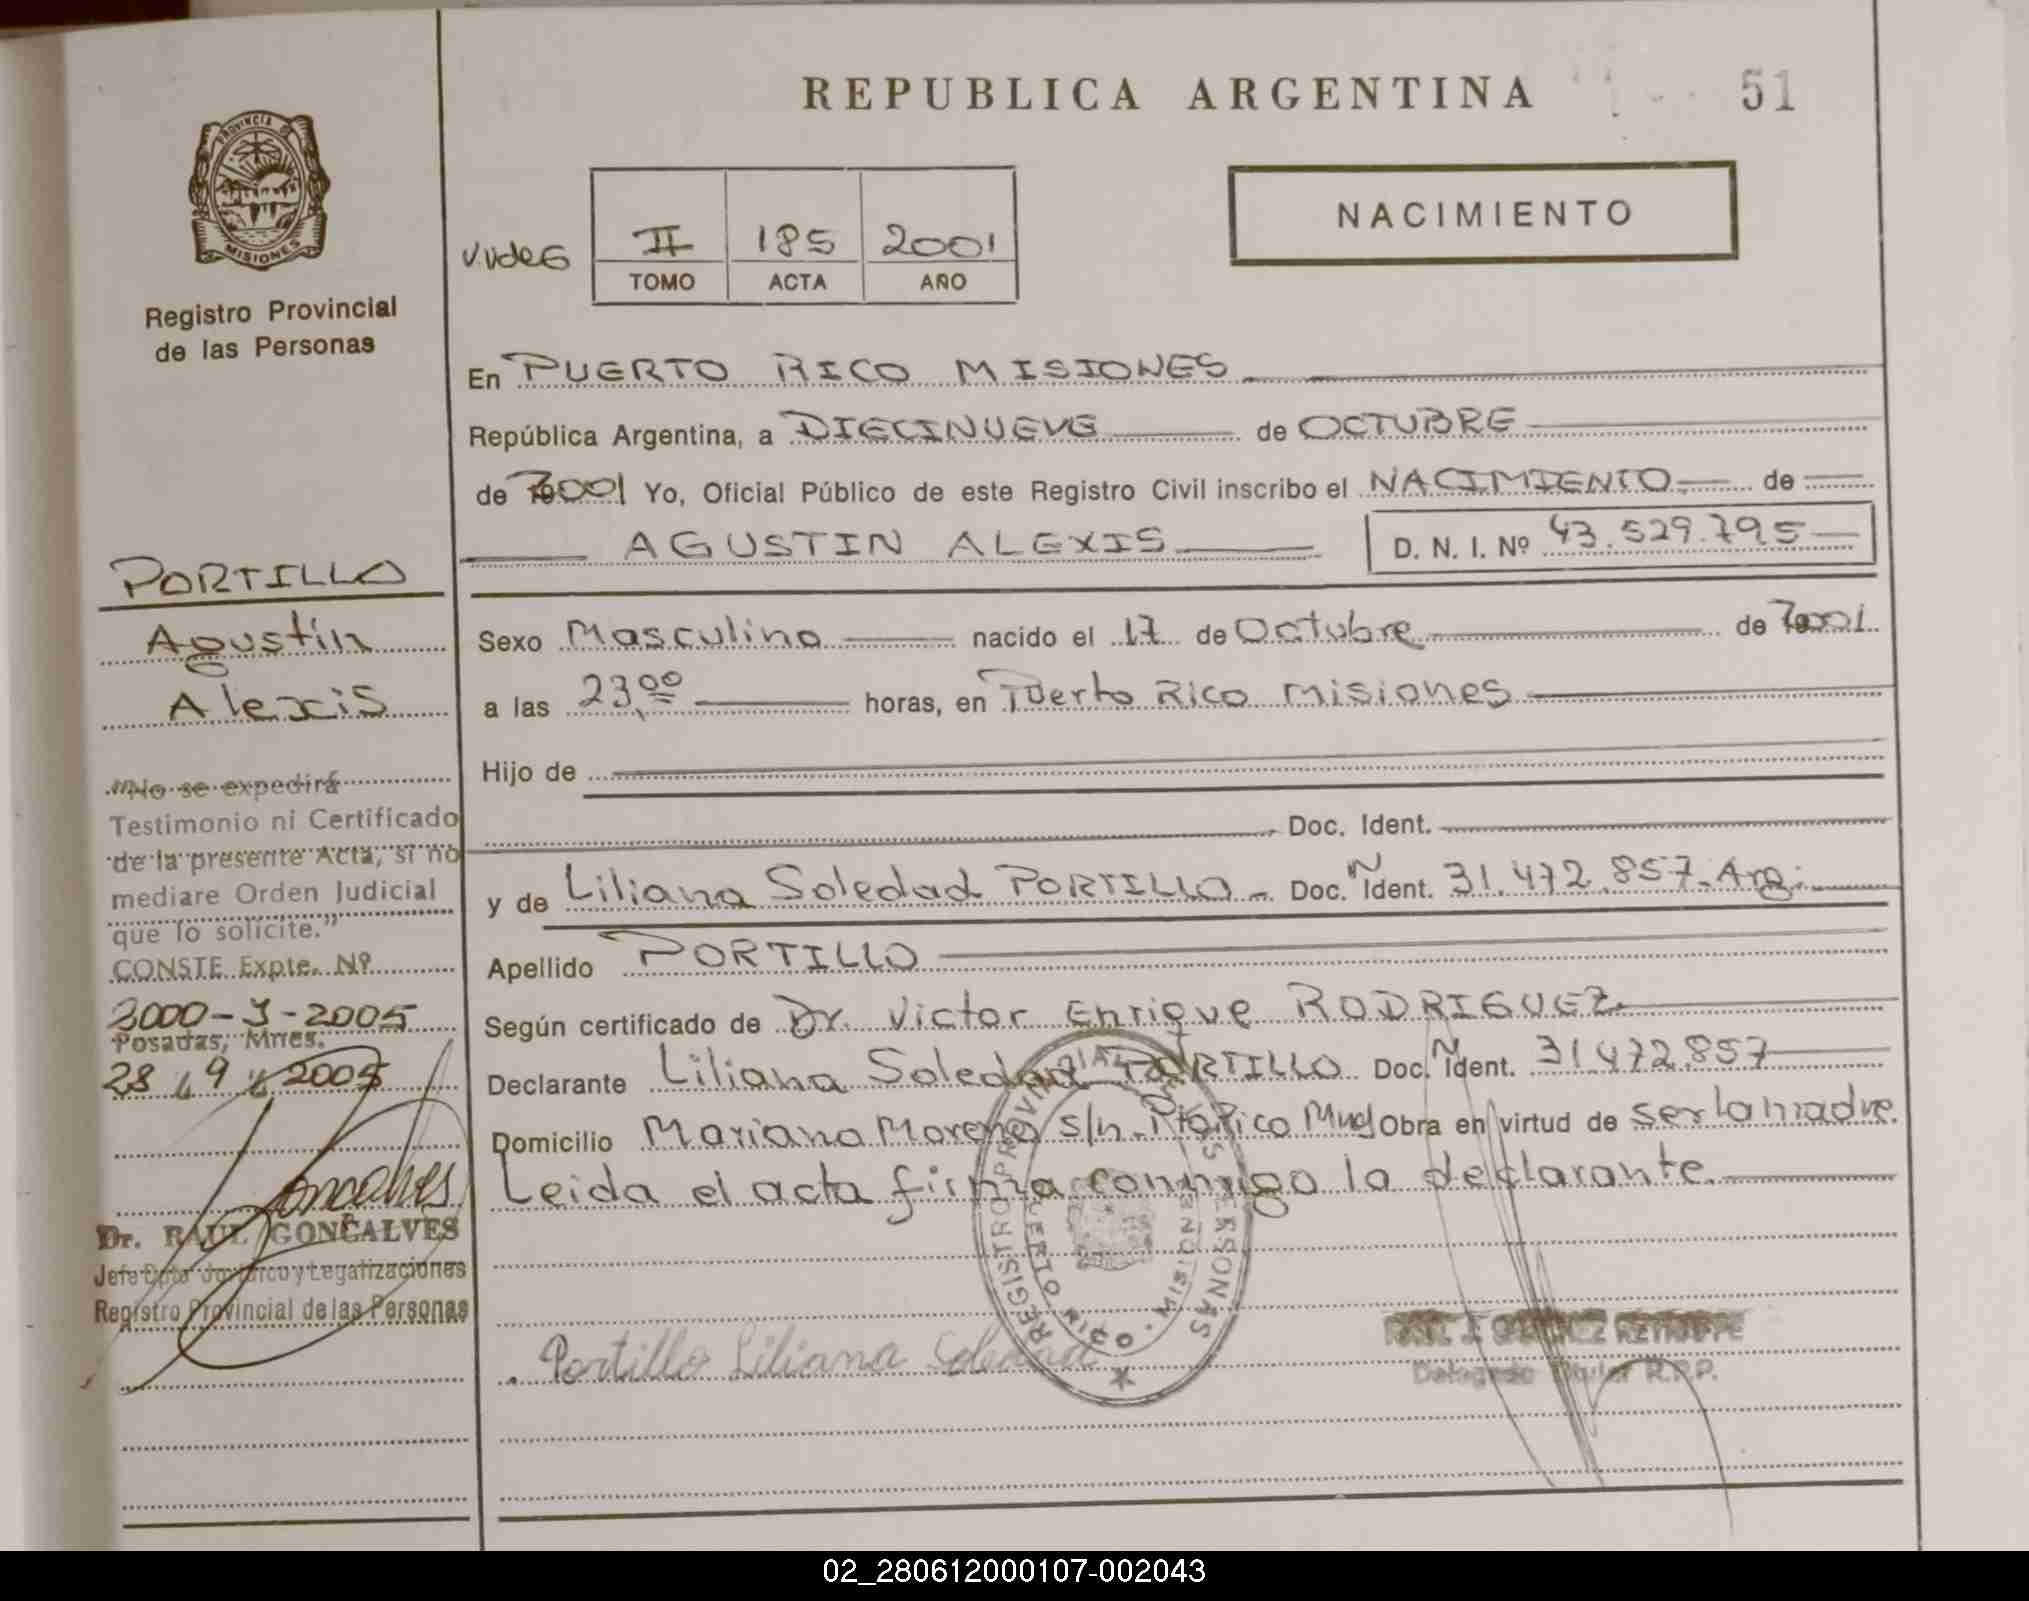 REPUBLICA ARGENTINA 51
PROVINCIA DE
MISIONES
Registro Provincial
de las Personas
II 185 2001
TOMO ACTA AÑO
NACIMIENTO
En PUERTO RICO MISIONES
República Argentina, a DIECINUEVE de OCTUBRE
de 2001 Yo, Oficial Público de este Registro Civil inscribo el NACIMIENTO de
AGUSTIN ALEXIS D. N. I. Nº 43.529.795
PORTILLO
Agustin
Alexis
Sexo Masculino nacido el 17 de Octubre de 2001
a las 23,00 horas, en Puerto Rico Misiones
Hijo de
Doc. Ident.
y de Liliana Soledad PORTILLO - Doc. N Ident. 31.472.857-Arg.
Apellido PORTILLO
Según certificado de Dr. Victor Enrique RODRIGUEZ
Declarante Liliana Soledad PORTILLO Doc. N Ident. 31.472.857
Domicilio Mariano Moreno s/n- Pto Rico Mnes Obra en virtud de ser la madre.
Leida el acta firma conmigo la declarante.
"No se expedirá
Testimonio ni Certificado
de la presente Acta, si no
mediare Orden Judicial
que lo solicite."
CONSTE Expte. Nº
3000-J-2005
Posadas, Mnes.
28 9 2005
Goncalves
Dr. RAUL GONÇALVES
Jefe Dpto Jurídico y Legalizaciones
Registro Provincial de las Personas
REGISTRO PROVINCIAL DE LAS PERSONAS
PUERTO RICO MISIONES
Portillo Liliana Soledad
Delegado Titular R.P.P.
02_280612000107-002043